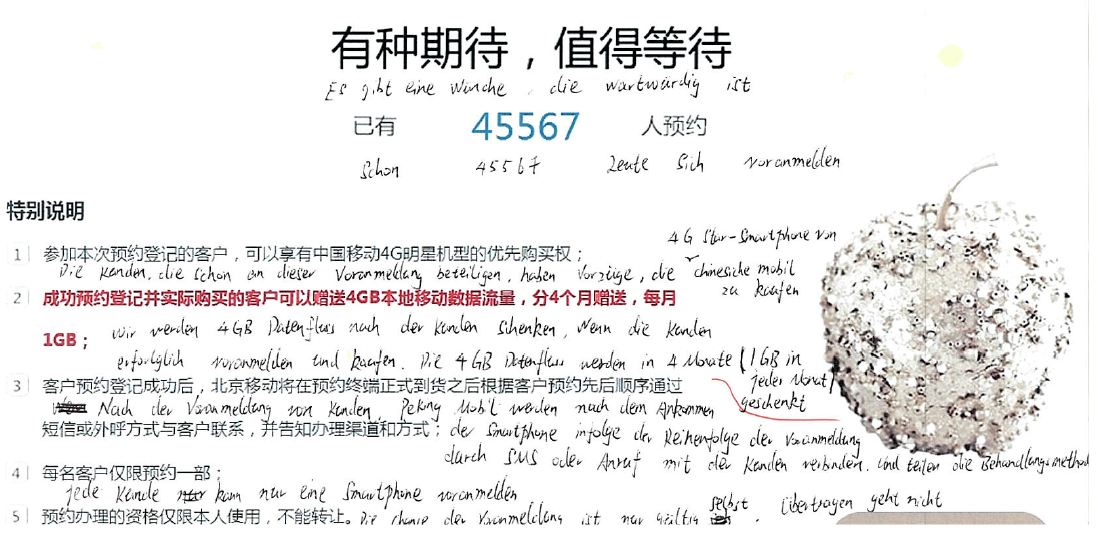 有种期待，值得等待
Es gibt eine Wünche, die wartwürdig ist
已有 45567 人预约
Schon 45567 Leute sich voranmelden
特别说明
4G Star-Smartphone von
1 参加本次预约登记的客户，可以享有中国移动4G明星机型的优先购买权；
Die Kunden, die schon an dieser Voranmeldung beteiligen, haben Vorzüge, die chinesiche mobil
zu kaufen
2 成功预约登记并实际购买的客户可以赠送4GB本地移动数据流量，分4个月赠送，每月
1GB； Wir werden 4GB Datenfluss nach der Kunden schenken, wenn die Kunden
erforglich voranmelden und kaufen. Die 4GB Datenfluss werden in 4 Monate (1GB in
jeder Monat)
geschenkt
3 客户预约登记成功后，北京移动将在预约终端正式到货之后根据客户预约先后顺序通过
Nach der Voranmeldung von Kunden, Peking Mobil werden nach dem Ankommen
短信或外呼方式与客户联系，并告知办理渠道和方式； der Smartphone infolge der Reihenfolge der Voranmeldung
durch SMS oder Anruf mit der Kunden verbinden. Und teilen die Behandlungsmethod
4 每名客户仅限预约一部；
Jede Kunde kann nur eine Smartphone voranmelden
5 预约办理的资格仅限本人使用，不能转让。 Die Chance der Voranmeldung ist nur gültig selbst. Übertragen geht nicht